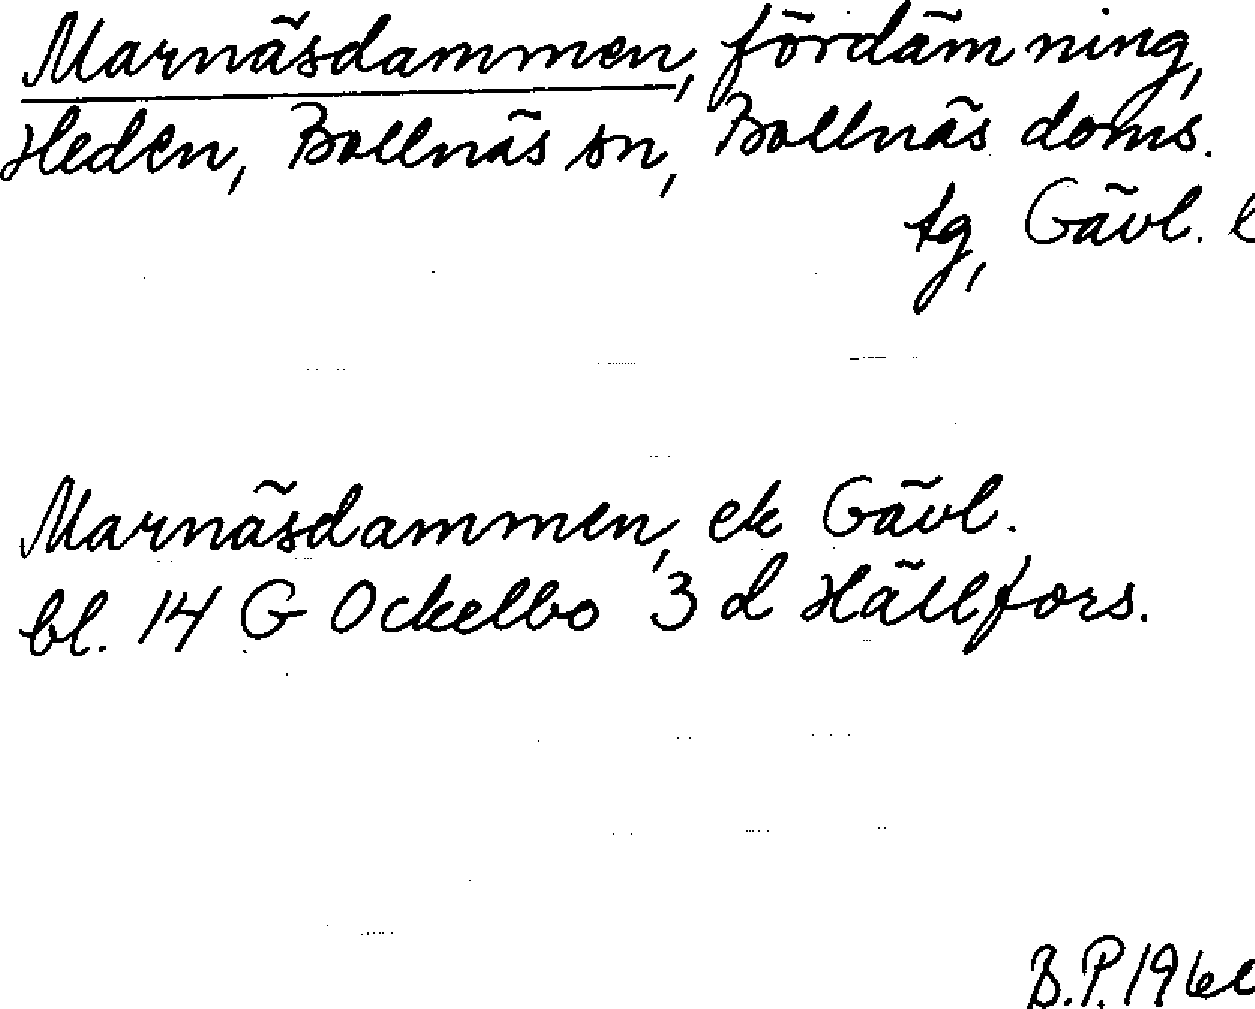 Marnäsdammen, fördämning,
Heden, Bollnäs sn, Bollnäs doms.
tg, Gävl.
Marnäsdammen, ek Gävl.
bl. 14 G Ockelbo 3 d Hällfors.
B.P. 196